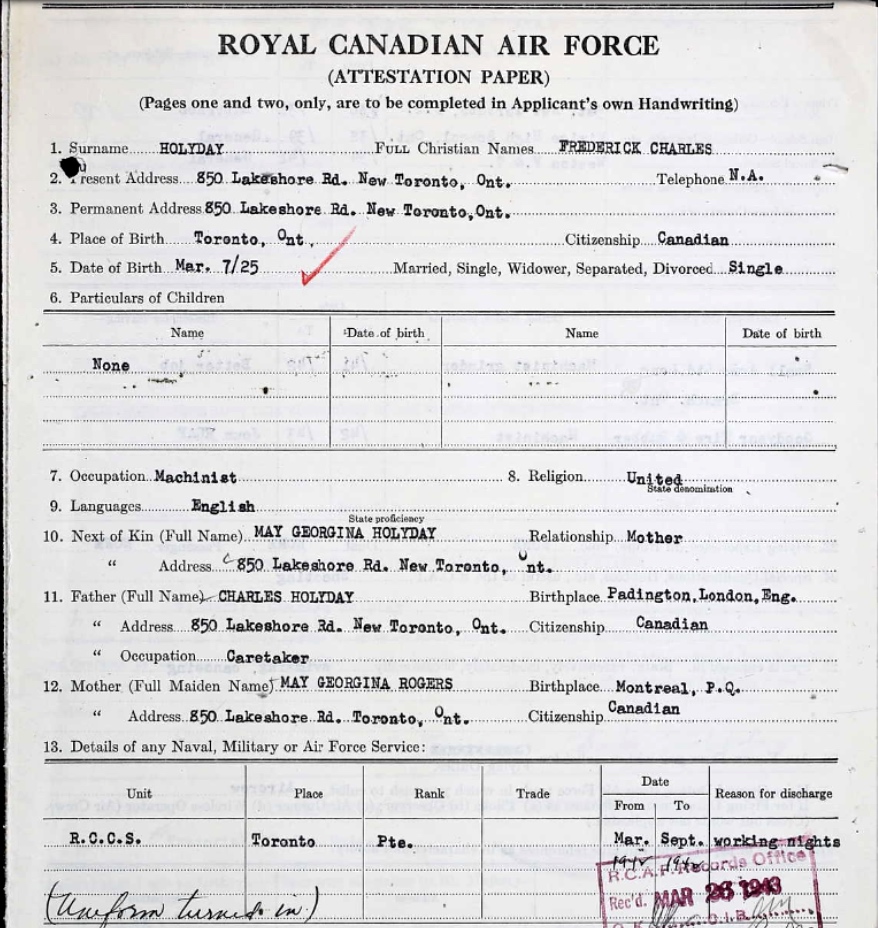 ROYAL CANADIAN AIR FORCE
(ATTESTATION PAPER)
(Pages one and two, only, are to be completed in Applicant's own Handwriting)
1. Surname HOLYDAY FULL Christian Names FREDERICK CHARLES
2. Present Address 850 Lakeshore Rd. New Toronto, Ont. Telephone N.A.
3. Permanent Address 850 Lakeshore Rd. New Toronto, Ont.
4. Place of Birth Toronto, Ont. Citizenship Canadian
5. Date of Birth Mar. 7/25 Married, Single, Widower, Separated, Divorced Single
6. Particulars of Children
Name Date of birth Name Date of birth
None
7. Occupation Machinist 8. Religion United
State denomination
9. Languages English
State proficiency
10. Next of Kin (Full Name) MAY GEORGINA HOLYDAY Relationship Mother
" Address 850 Lakeshore Rd. New Toronto, Ont.
11. Father (Full Name) CHARLES HOLYDAY Birthplace Padington, London, Eng.
" Address 850 Lakeshore Rd. New Toronto, Ont. Citizenship Canadian
" Occupation Caretaker
12. Mother (Full Maiden Name) MAY GEORGINA ROGERS Birthplace Montreal, P.Q.
" Address 850 Lakeshore Rd. Toronto, Ont. Citizenship Canadian
13. Details of any Naval, Military or Air Force Service:
Unit Place Rank Trade Date Reason for discharge
From To
R.C.C.S. Toronto Pte. Mar. Sept. working nights
R.C.A.F. Records Office
Rec'd. MAR 26 1943
(Uniform turned in)